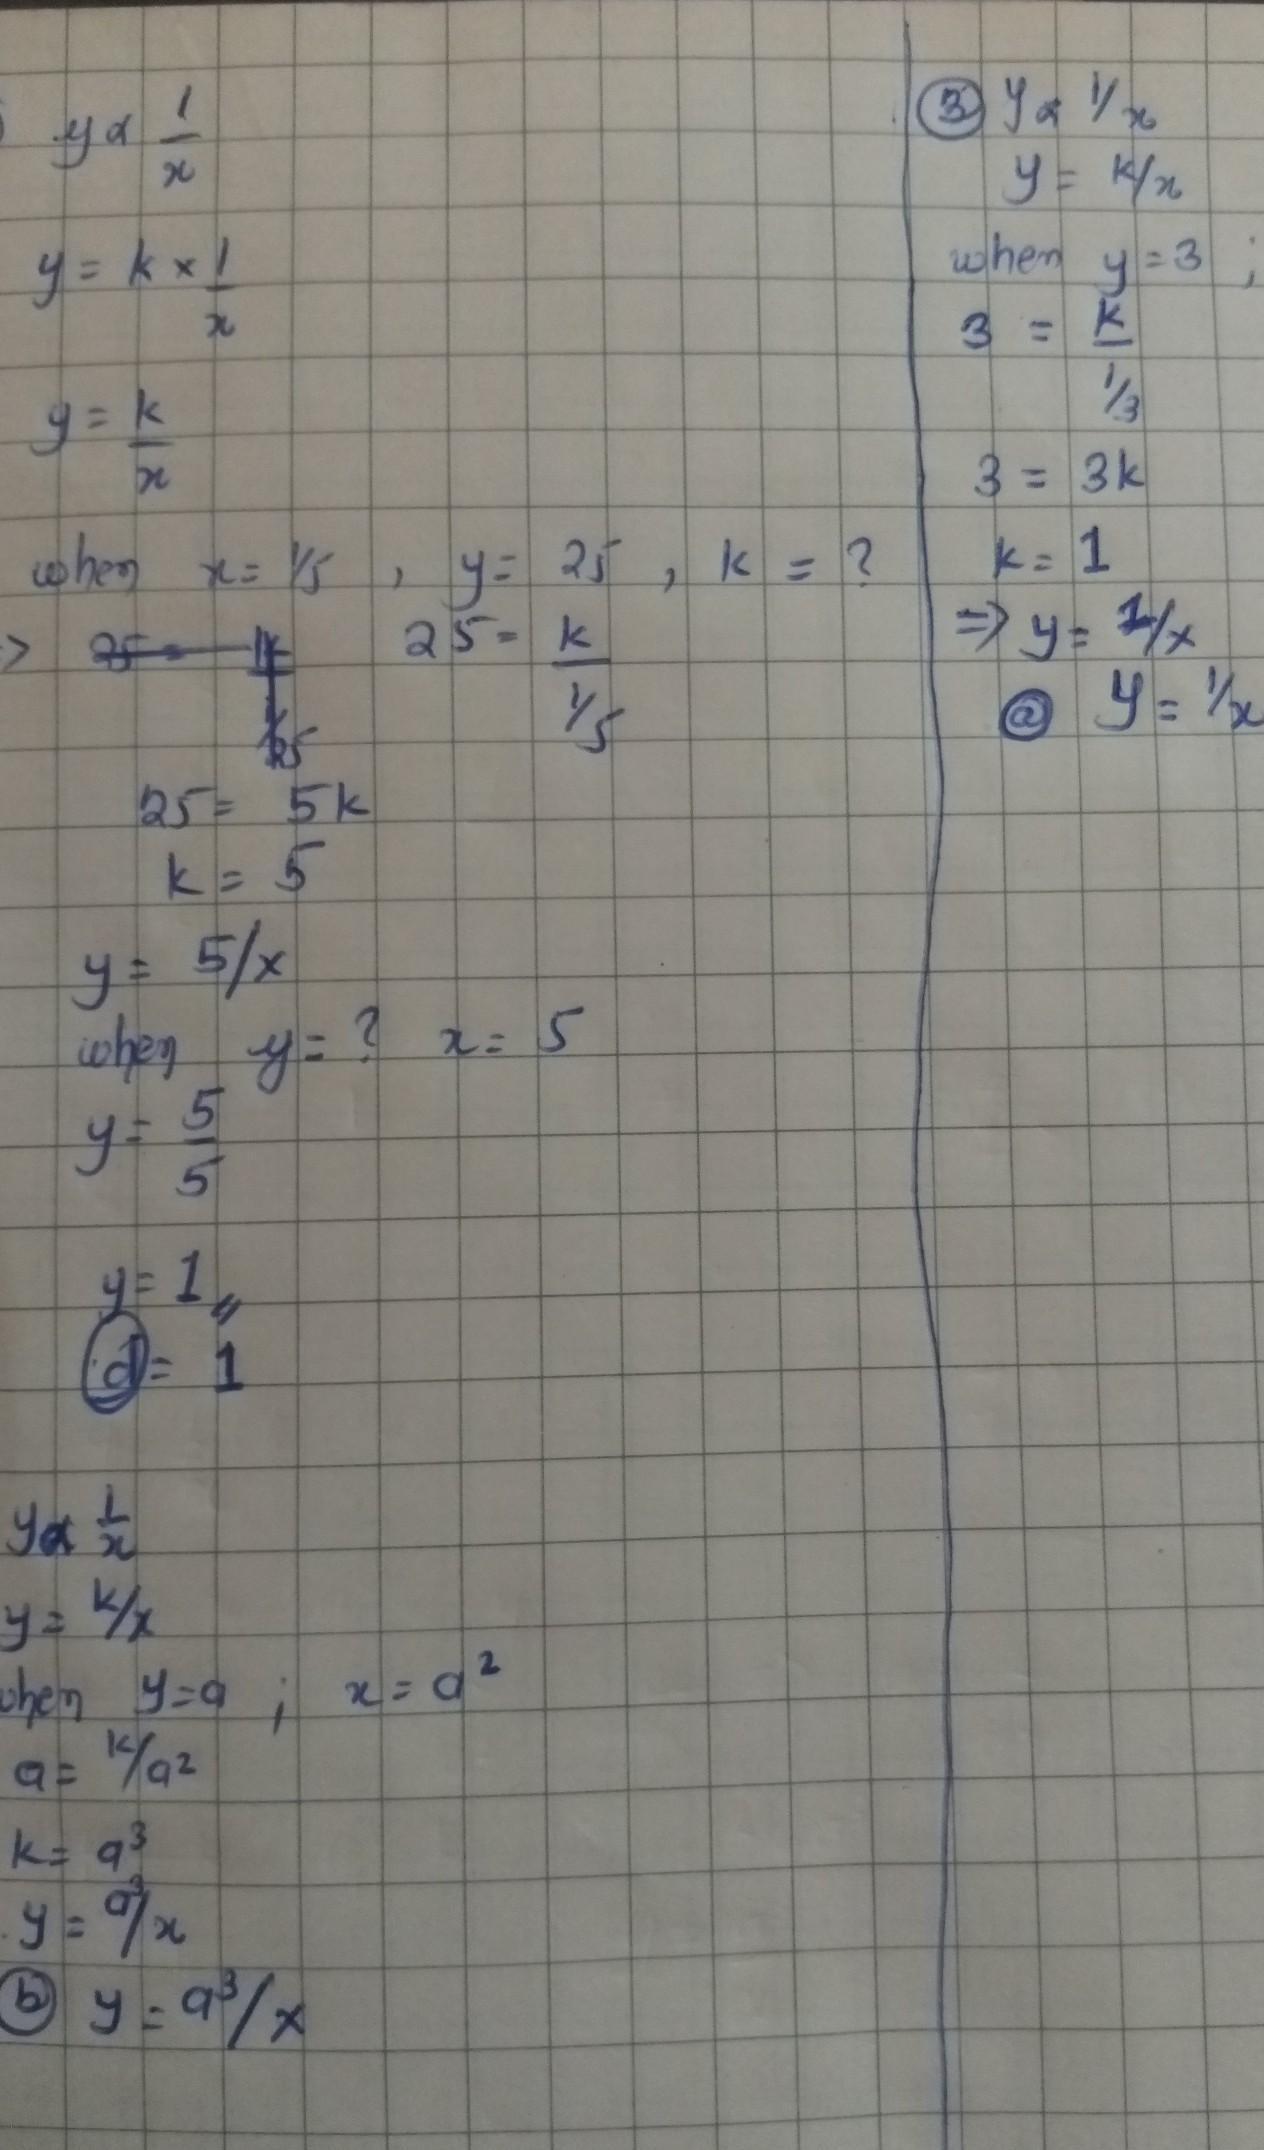 y ∝ 1/x
y = k × 1/x
y = k/x
when x = 1/5 , y = 25 , k = ?
25 = k / 1/5
25 = 5k
k = 5
y = 5/x
when y = ? x = 5
y = 5/5
y = 1
d = 1
y ∝ 1/x
y = k/x
when y = a ; x = a²
a = k/a²
k = a³
y = a³/x
b y = a³/x
3 y ∝ 1/x
y = k/x
when y = 3 ;
3 = k / 1/3
3 = 3k
k = 1
⇒ y = 1/x
a y = 1/x